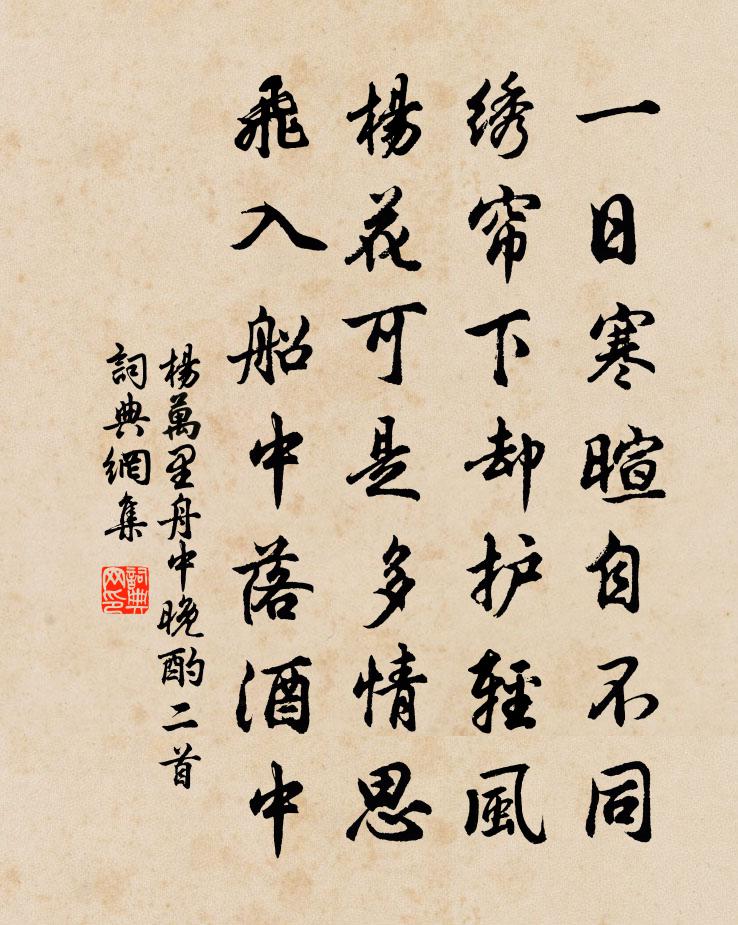 一日寒暄自不同
绣帘下却护輕風
楊花可是多情思
飛入船中落酒中
楊萬里舟中晚酌二首
詞典網集
詞典网印